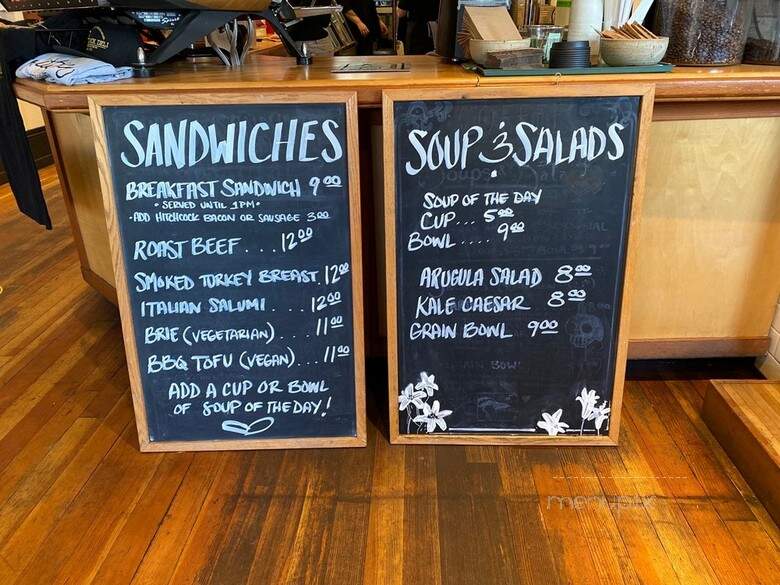 SANDWICHES
BREAKFAST SANDWICH 9.00
• SERVED UNTIL 1PM •
• ADD HITCHCOCK BACON OR SAUSAGE 3.00
ROAST BEEF . . . . 12.00
SMOKED TURKEY BREAST . 12.00
ITALIAN SALUMI . . . . 12.00
BRIE (VEGETARIAN) . . . . 11.00
BBQ TOFU (VEGAN) . . . 11.00
ADD A CUP OR BOWL
OF SOUP OF THE DAY!
SOUP & SALADS
SOUP OF THE DAY
CUP . . . 5.00
BOWL . . . . 9.00
ARUGULA SALAD 8.00
KALE CAESAR 8.00
GRAIN BOWL 9.00
menupix